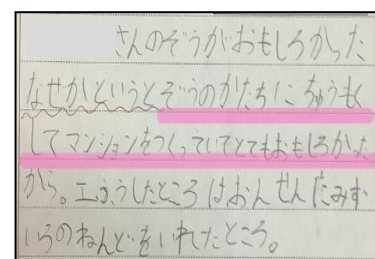 さんのぞうがおもしろかった
なせかというとぞうのかたちにちゅうもく
してマンションをつくっていてとてもおもしろかった
から。工ふうしたところはおんせんにみず
いろのねんどをいれたところ。